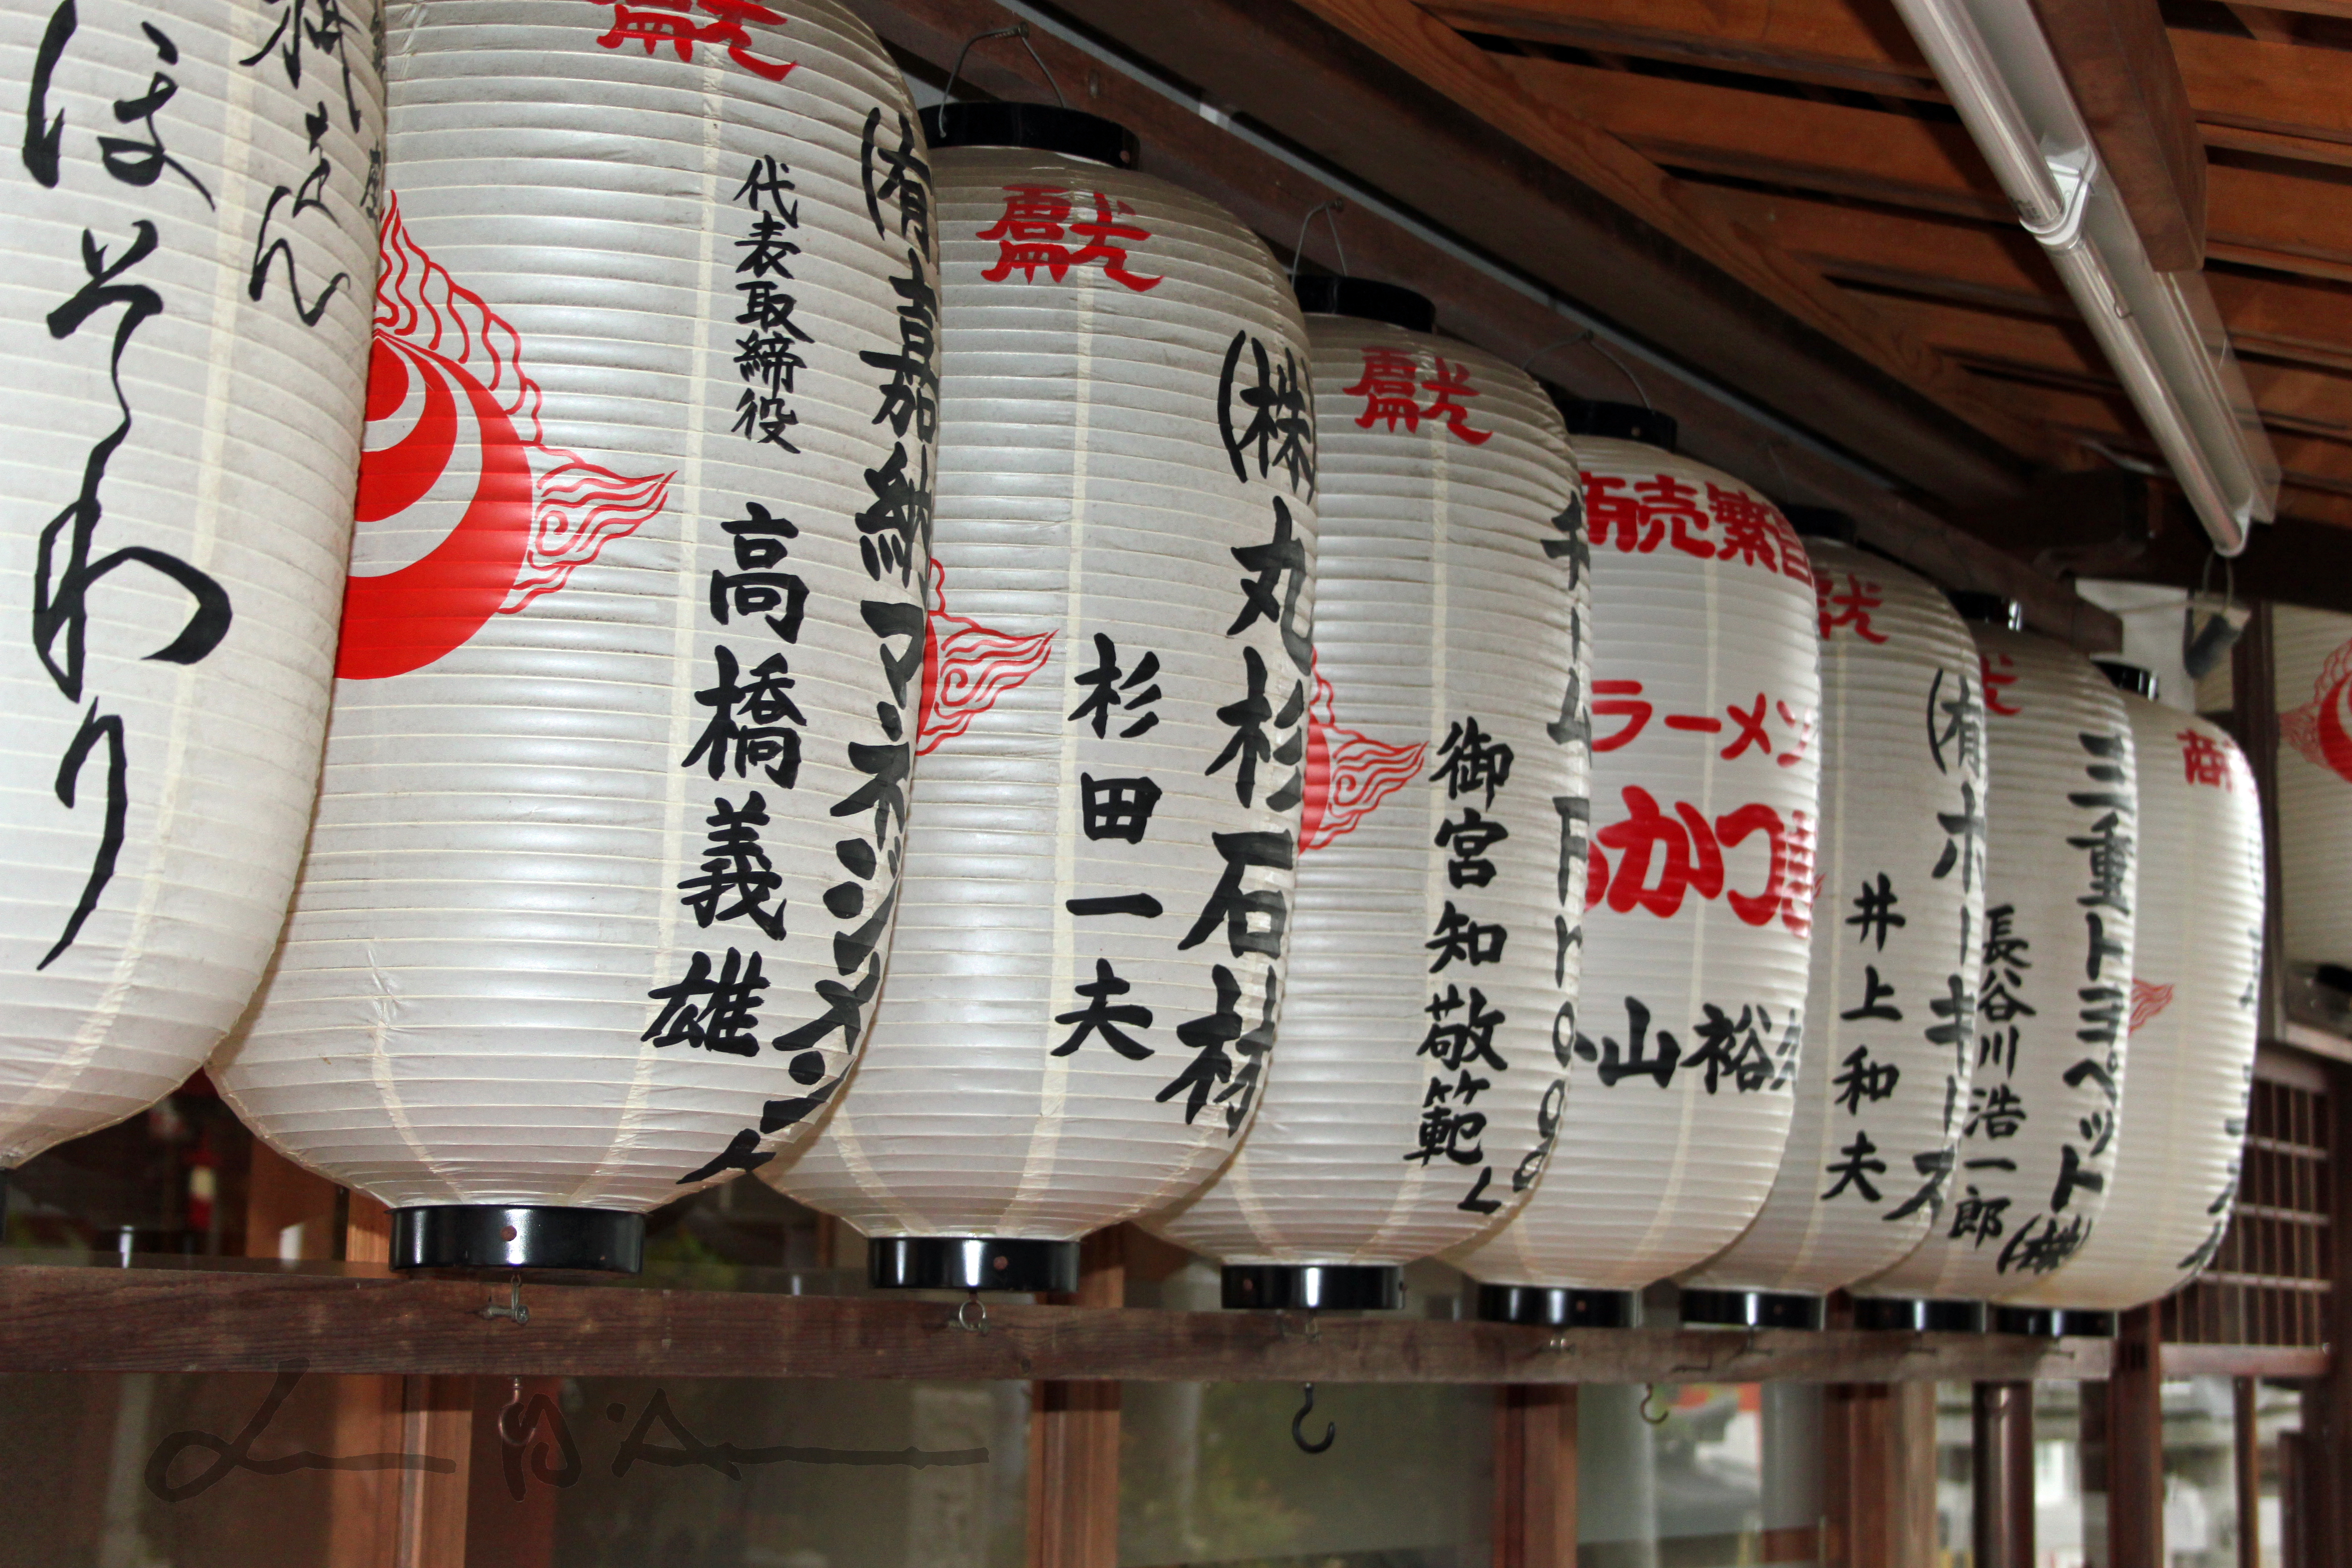 ほそわり
献
(有)嘉納マネジメント
代表取締役 高橋義雄
献
(株)丸杉石材
杉田一夫
献
チームFrogg
御宮知敬範
商売繁昌
ラーメン
かつ
小山裕
献
(有)ホーキース
井上和夫
三重トヨペット(株)
長谷川浩一郎
商